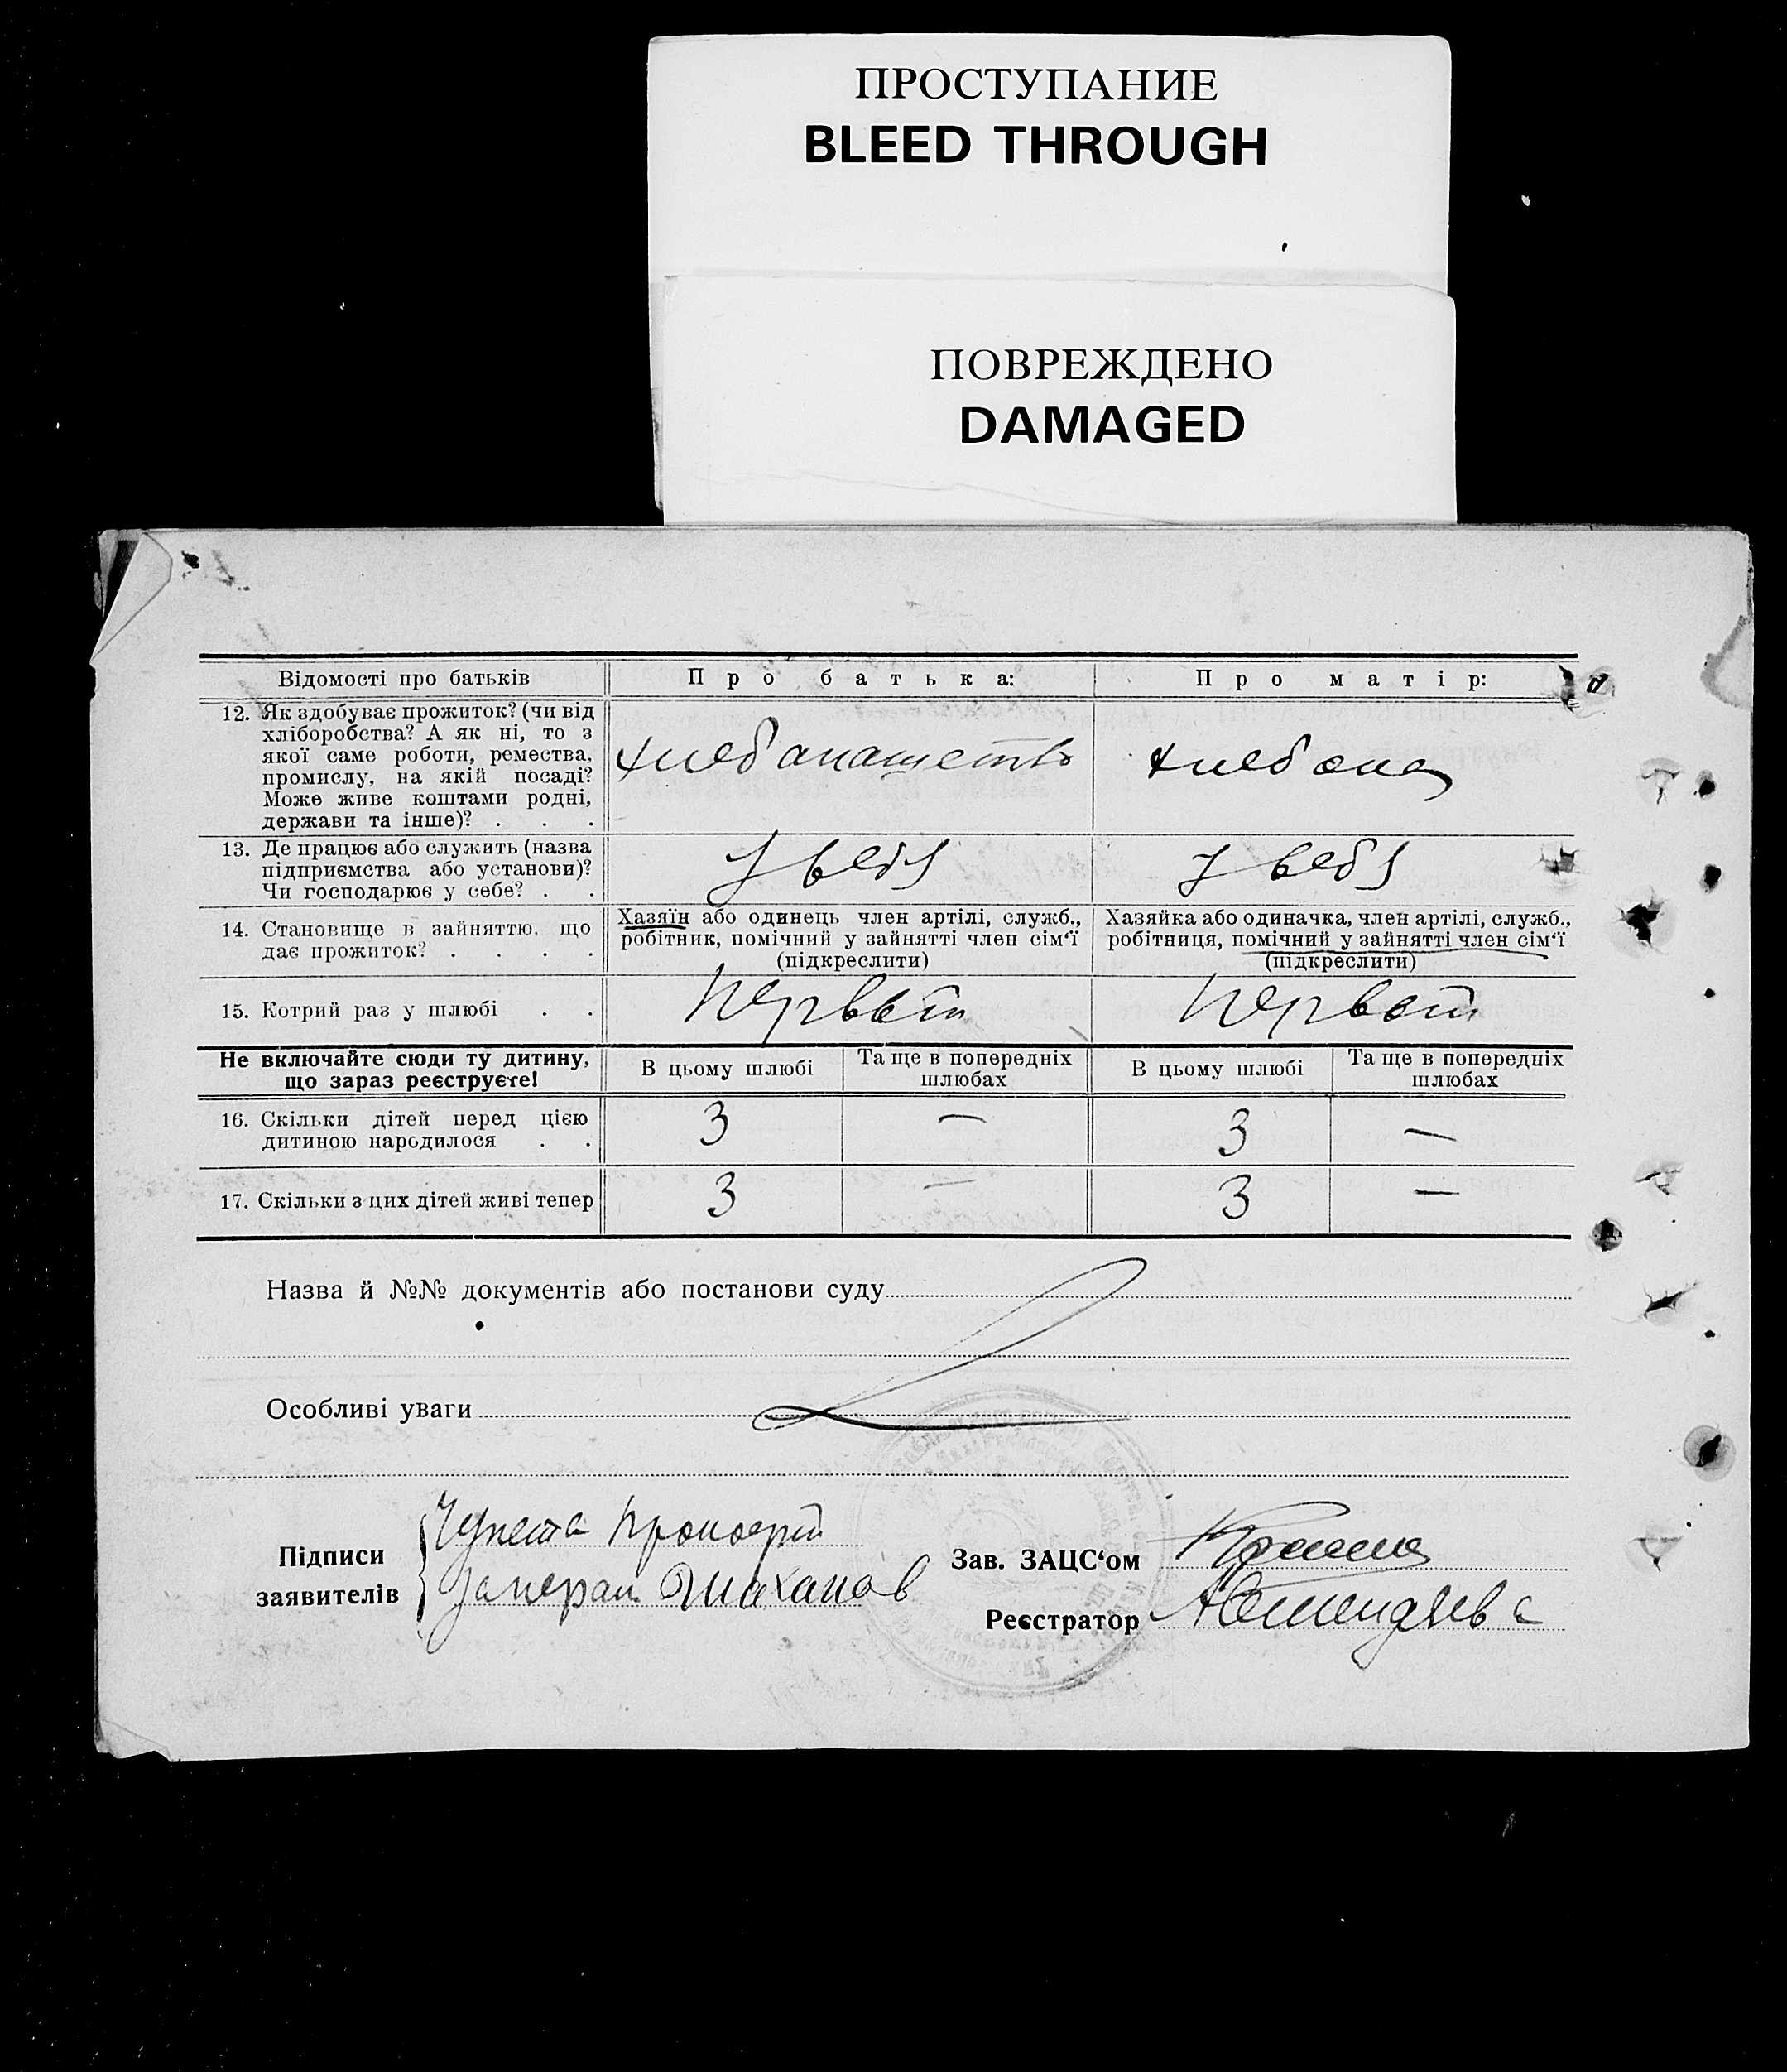 ПРОСТУПАНИЕ
BLEED THROUGH
ПОВРЕЖДЕНО
DAMAGED
Відомості про батьків Про батька: Про матір:
12. Як здобуває прожиток? (чи від
хліборобства? А як ні, то з
якої саме роботи, ремества,
промислу, на якій посаді?
Може живе коштами родні,
держави та інше)? . . .
хлебопашеств хлебопа
13. Де працює або служить (назва
підприємства або установи)?
Чи господарює у себе? . .
У себя У себя
14. Становище в зайняттю, що
дає прожиток? . . . .
Хазяїн або одинець член артілі, служб.,
робітник, помічний у зайнятті член сім‘ї
(підкреслити)
Хазяйка або одиначка, член артілі, служб.,
робітниця, помічний у зайнятті член сім‘ї
(підкреслити)
15. Котрий раз у шлюбі . . Первый Первый
Не включайте сюди ту дитину,
що зараз реєструєте!
В цьому шлюбі Та ще в попередніх
шлюбах
В цьому шлюбі Та ще в попередніх
шлюбах
16. Скільки дітей перед цією
дитиною народилося . .
3 — 3 —
17. Скільки з цих дітей живі тепер 3 — 3 —
Назва й №№ документів або постанови суду
Особливі уваги
Підписи
заявителів
Прокофий
Зав. ЗАЦС‘ом
Реєстратор